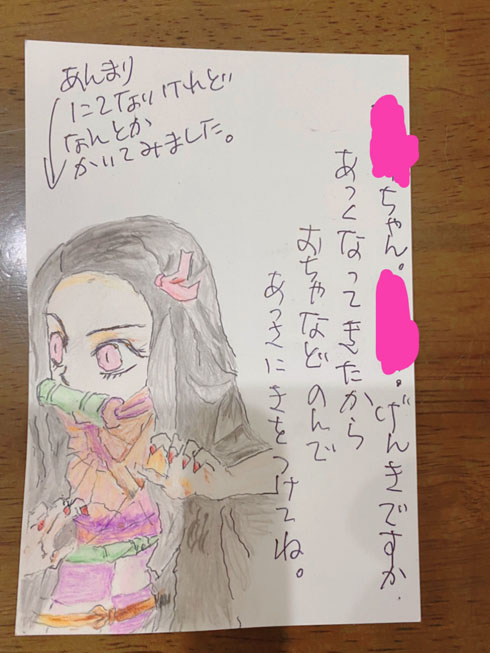 ちゃん。 。げんきですか.
あつくなってきたから
おちゃなどのんで
あつさにきをつけてね。
あんまり
にてないけれど
なんとか
かいてみました。